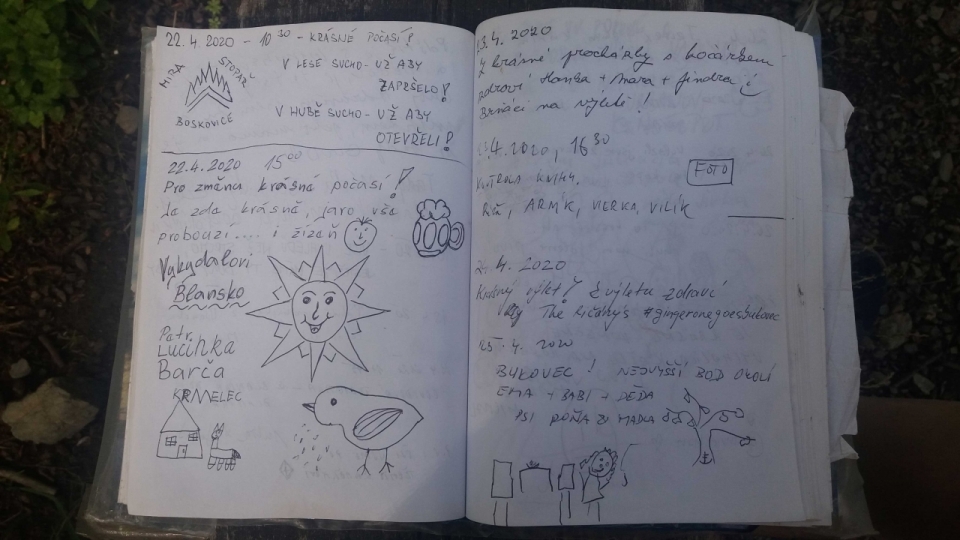 22. 4. 2020 - 10 30 - KRÁSNÉ POČASÍ!
V LESE SUCHO - UŽ ABY
ZAPRŠELO!
MIRA STOPAŘ
BOSKOVICE
V HUBĚ SUCHO - UŽ ABY
OTEVŘELI!
22.4.2020 15 00
Pro změnu krásné počasí!
Je zde krásně, jaro vše
probouzí.... i žízeň
Vykydalovi
Blansko
Patr.
Lucinka
Barča
KRMELEC
4. 2020
krásné procházky s kočárkem
zdraví Hanka + Mara + Jindra
Brňáci na výletě!
4. 2020, 16 30
KNIHY.
FOTO
ARMÍK, VIERKA, VILÍK
4. 2020
výlet! Z výletu zdraví
The Říčany's #gingeronegoesbukovec
25. 4. 2020
BUKOVEC! NEJVYŠŠÍ BOD OKOLÍ
EMA + BABI + DĚDA
PSI